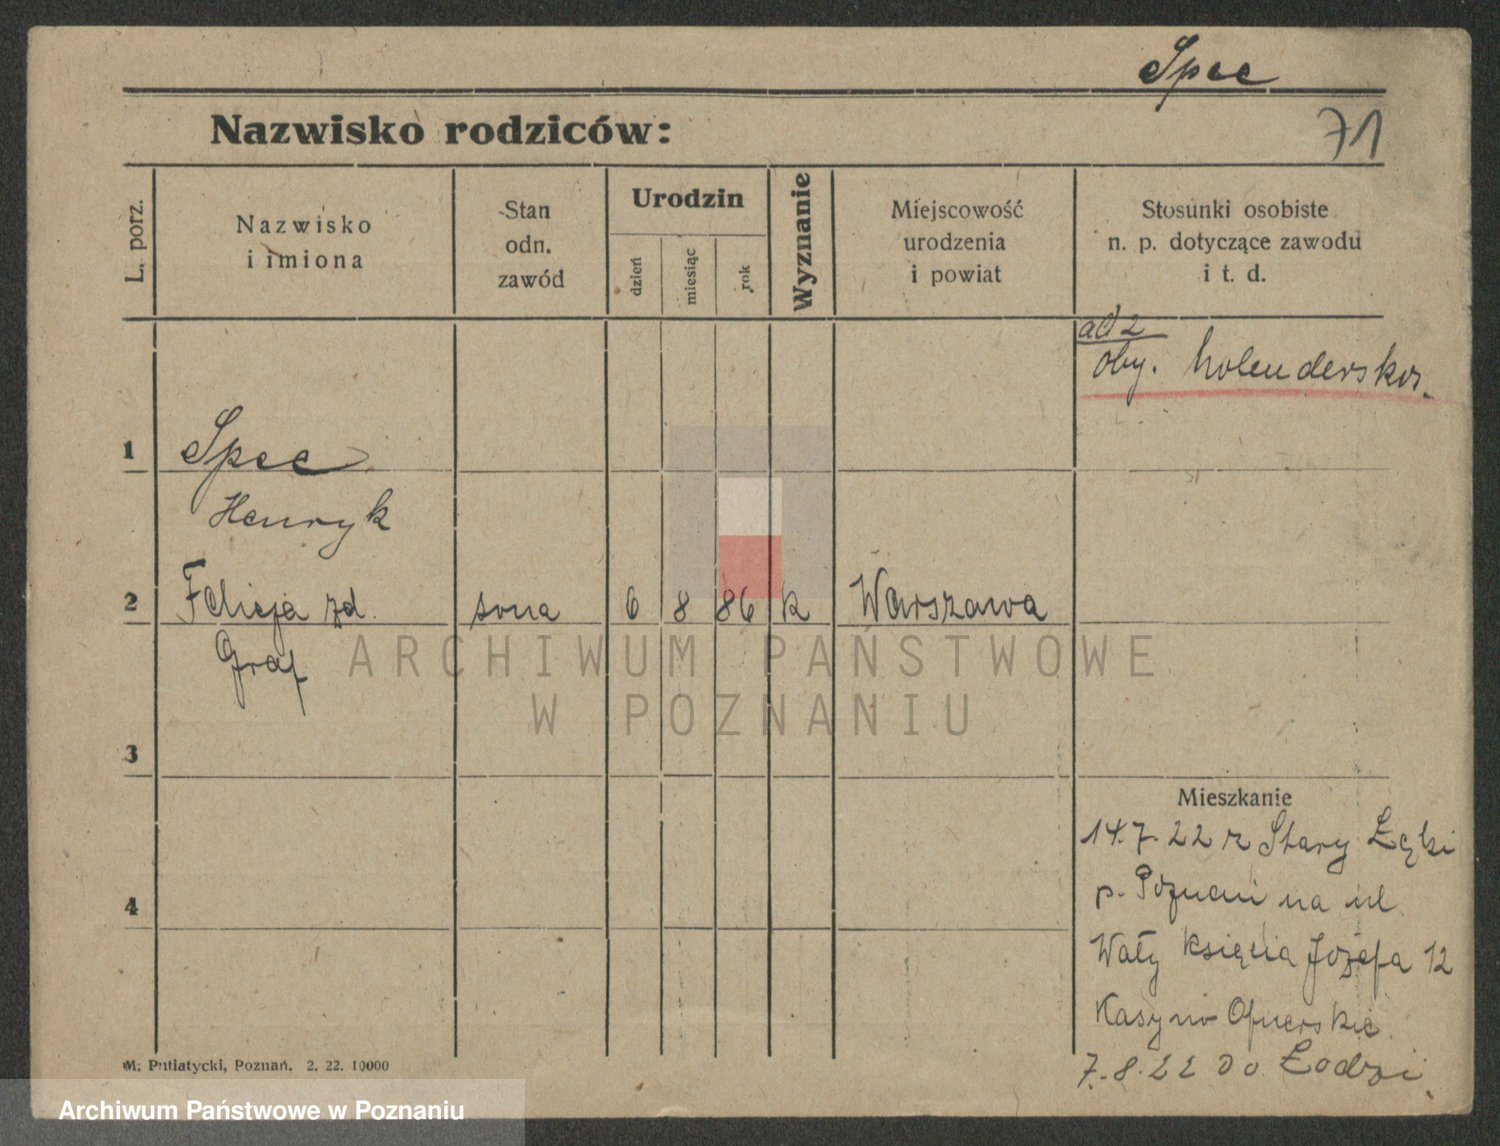 Spec
71
Nazwisko rodziców:
L. porz.
Nazwisko
i imiona
Stan
odn.
zawód
Urodzin
dzień
miesiąc
rok
Wyznanie
Miejscowość
urodzenia
i powiat
Stosunki osobiste
n. p. dotyczące zawodu
i t. d.
ad 2
oby. holenderskos.
1 Spec
Henryk
2 Felicja zd. żona 6 8 86 k Warszawa
Graf
ARCHIWUM PAŃSTWOWE
W POZNANIU
3
Mieszkanie
14.7.22 z Stary
p. Poznań na ul
4
Wały Księcia Józefa 12
Kasyno Oficerskie
7.8.22 do Łodzi
M. Putiatycki, Poznań. 2. 22. 10000
Archiwum Państwowe w Poznaniu